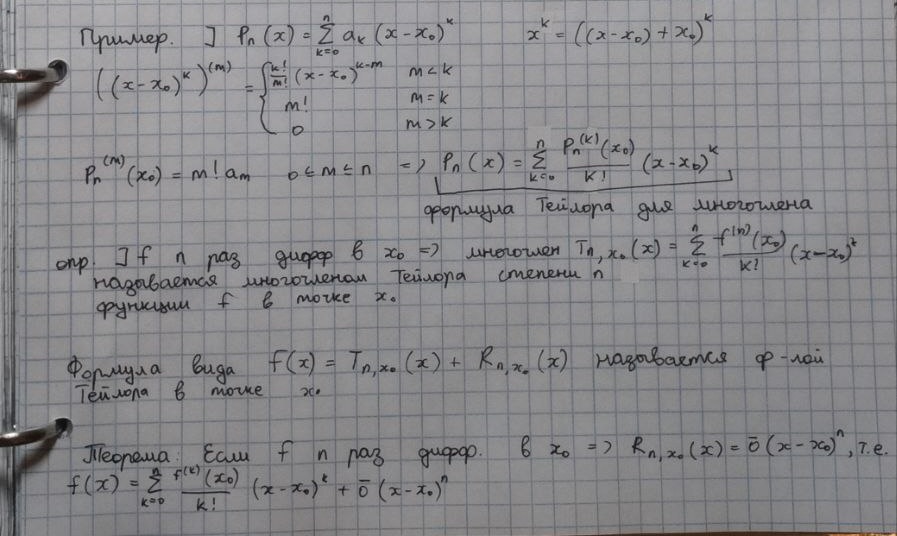 Пример. ] Pₙ(x) = ∑ₖ₌₀ⁿ aₖ (x-x₀)ᵏ xᵏ = ((x-x₀) + x₀)ᵏ
((x-x₀)ᵏ)⁽ᵐ⁾ = { k!/m! (x-x₀)ᵏ⁻ᵐ m < k
m! m = k
0 m > k
Pₙ⁽ᵐ⁾(x₀) = m! aₘ 0 ≤ m ≤ n => Pₙ(x) = ∑ₖ₌₀ⁿ Pₙ⁽ᵏ⁾(x₀)/k! (x-x₀)ᵏ
формула Тейлора для многочлена
опр. ] f n раз дифф в x₀ => многочлен Tₙ,ₓ₀(x) = ∑ₖ₌₀ⁿ f⁽ⁿ⁾(x₀)/k! (x-x₀)ᵏ
называется многочленом Тейлора степени n
функции f в точке x₀
Формула вида f(x) = Tₙ,ₓ₀(x) + Rₙ,ₓ₀(x) называется ф-лой
Тейлора в точке x₀
Теорема: Если f n раз дифф. в x₀ => Rₙ,ₓ₀(x) = ō(x-x₀)ⁿ, т.е.
f(x) = ∑ₖ₌₀ⁿ f⁽ᵏ⁾(x₀)/k! (x-x₀)ᵏ + ō(x-x₀)ⁿ